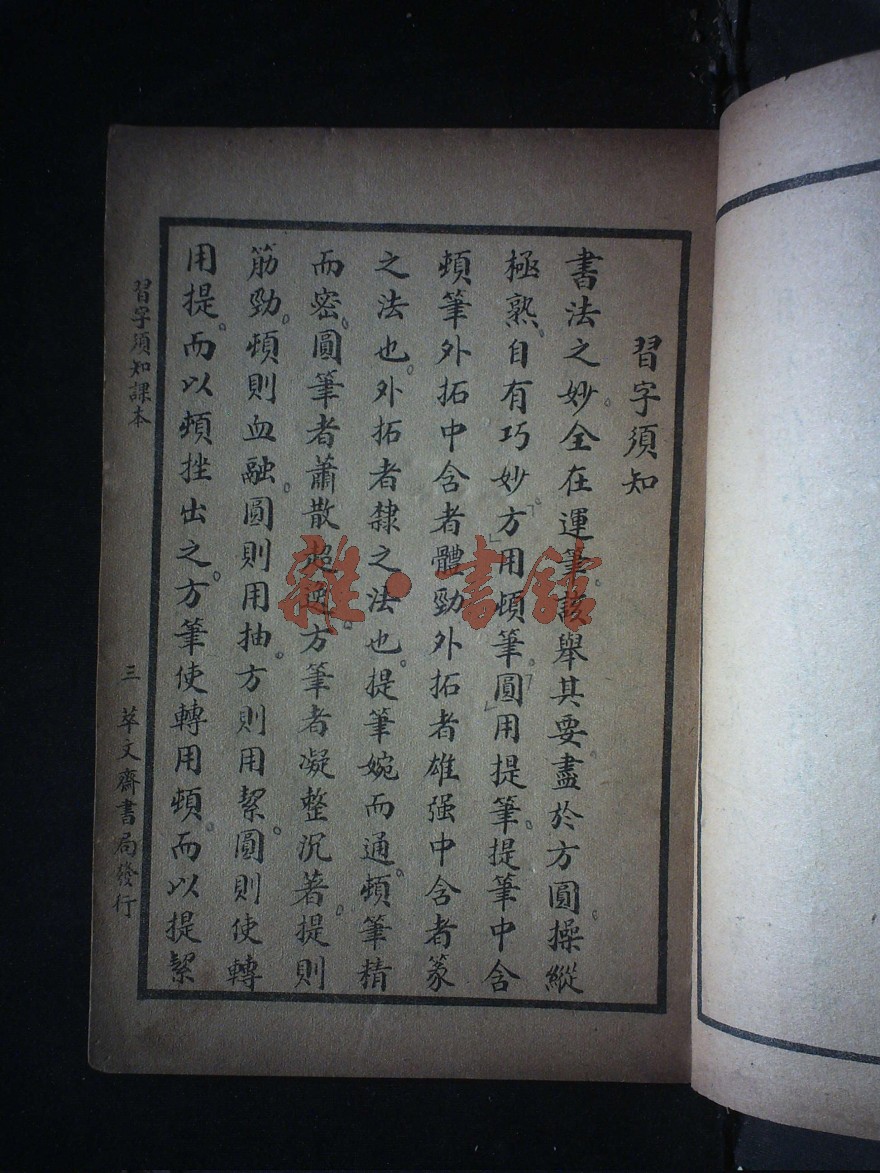 習字須知
書法之妙。全在運筆。該舉其要。盡於方圓。操縱
極熟。自有巧妙。「方」用頓筆。「圓」用提筆。提筆中含
頓筆外拓中含者體勁外拓者雄强中含者篆
之法也。外拓者隸之法也。提筆婉而通。頓筆精
而密。圓筆者蕭散超逸。方筆者凝整沉著。提則
筋勁。頓則血融。圓則用抽。方則用絜。圓則使轉
用提。而以頓挫出之。方筆使轉用頓。而以提絜
習字須知課本
三
萃文齋書局發行
雜·書館